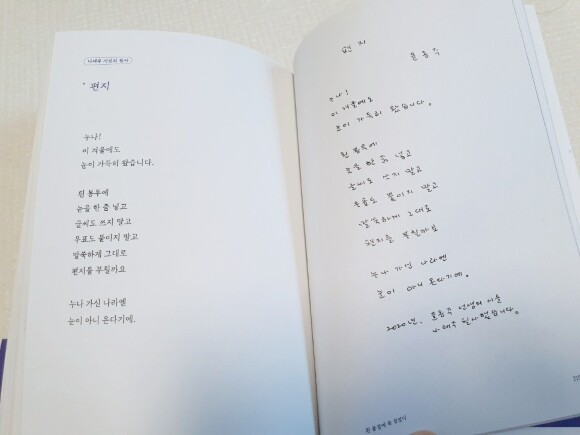 나태주 시인의 필사
편지
누나!
이 겨울에도
눈이 가득히 왔습니다.
흰 봉투에
눈을 한 줌 넣고
글씨도 쓰지 말고
우표도 붙이지 말고
말쑥하게 그대로
편지를 부칠까요
누나 가신 나라엔
눈이 아니 온다기에.
편지
윤동주
누나!
이 겨울에도
눈이 가득히 왔습니다.
흰 봉투에
눈을 한 줌 넣고
글씨도 쓰지 말고
우표도 붙이지 말고
말쑥하게 그대로
편지를 부칠까요
누나 가신 나라엔
눈이 아니 온다기에.
2020년, 윤동주 선생의 시를
나태주 필사했습니다.